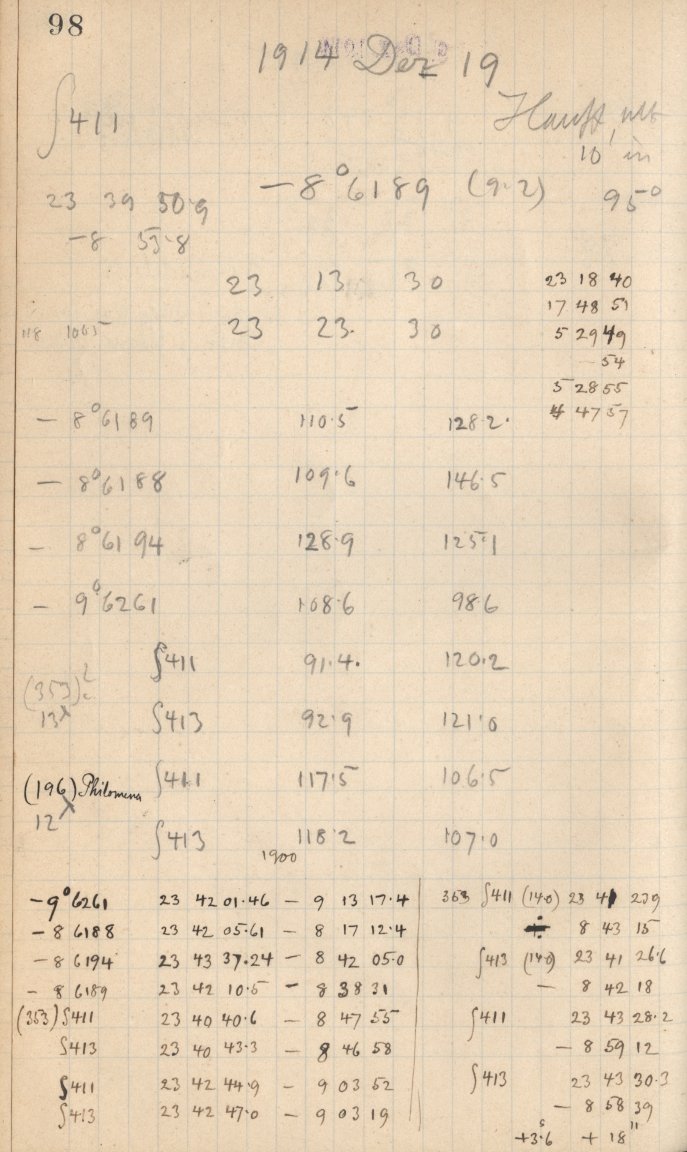 98
1914 Dez 19
∫411
10' in
-8°6189 (9.2) 95°
23 39 50.9
-8 53.8
23 13 30 23 18 40
17 48 51
23 23. 30 5 29 49
- 54
5 28 55
4 47 57
- 8°6189 110.5 128.2.
- 8°6188 109.6 146.5
- 8°6194 128.9 125.1
- 9°6261 108.6 98.6
∫411 91.4. 120.2
(353)?
13x ∫413 92.9 121.0
(196) Philomena ∫411 117.5 106.5
12x
∫413 118.2 107.0
1900
-9°6261 23 42 01.46 - 9 13 17.4 353 ∫411 (14.0) 23 41 23.9
- 8 6188 23 42 05.61 - 8 17 12.4 8 43 15
- 8 6194 23 43 37.24 - 8 42 05.0 ∫413 (14.0) 23 41 26.6
- 8 6189 23 42 10.5 - 8 38 31 - 8 42 18
(353) ∫411 23 40 40.6 - 8 47 55 ∫411 23 43 28.2
∫413 23 40 43.3 - 8 46 58 - 8 59 12
∫411 23 42 44.9 - 9 03 52 ∫413 23 43 30.3
∫413 23 42 47.0 - 9 03 19 - 8 58 39
+3.6s + 18"